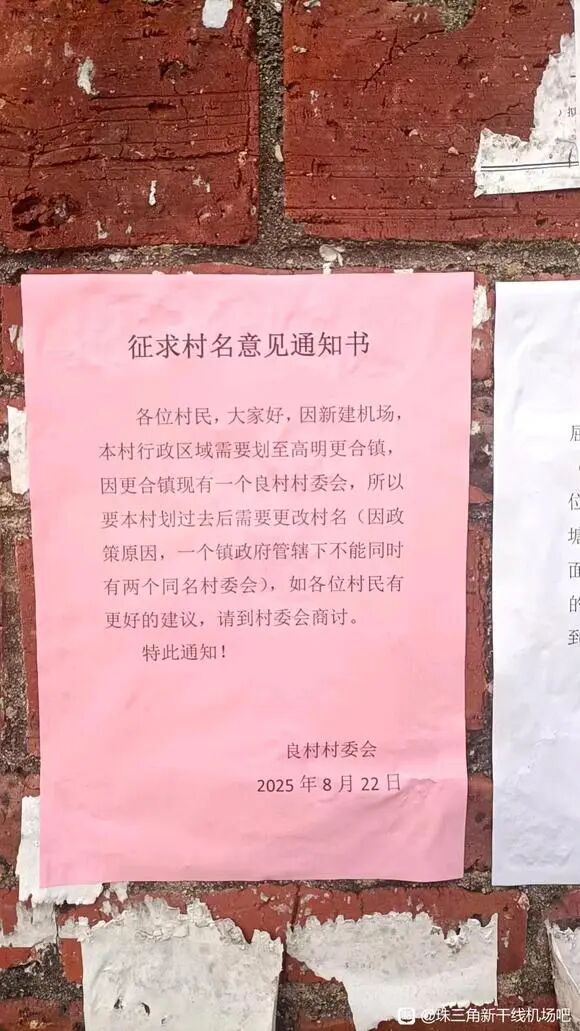 征求村名意见通知书
各位村民，大家好，因新建机场，
本村行政区域需要划至高明更合镇，
因更合镇现有一个良村村委会，所以
要本村划过去后需要更改村名（因政
策原因，一个镇政府管辖下不能同时
有两个同名村委会），如各位村民有
更好的建议，请到村委会商讨。
特此通知！
良村村委会
2025 年 8 月 22 日
屈
位
塘
面
的
到
@珠三角新干线机场吧